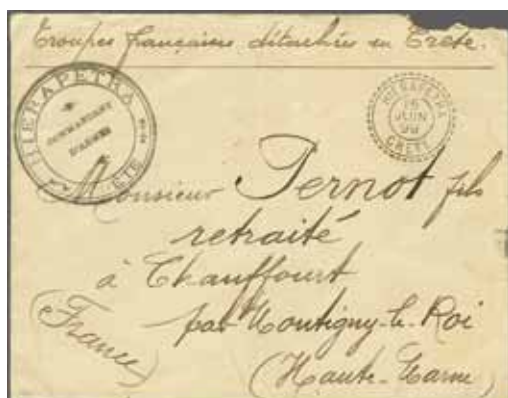 Troupes françaises détachées en Crète.
HIERAPETRA
COMMANDANT
D'ARMES
HIERAPETRA
JUIN
99
CRETE
Monsieur Pernot fils
retraité
à Chauffourt
par Montigny-le-Roi
(France)
(Haute-Marne)